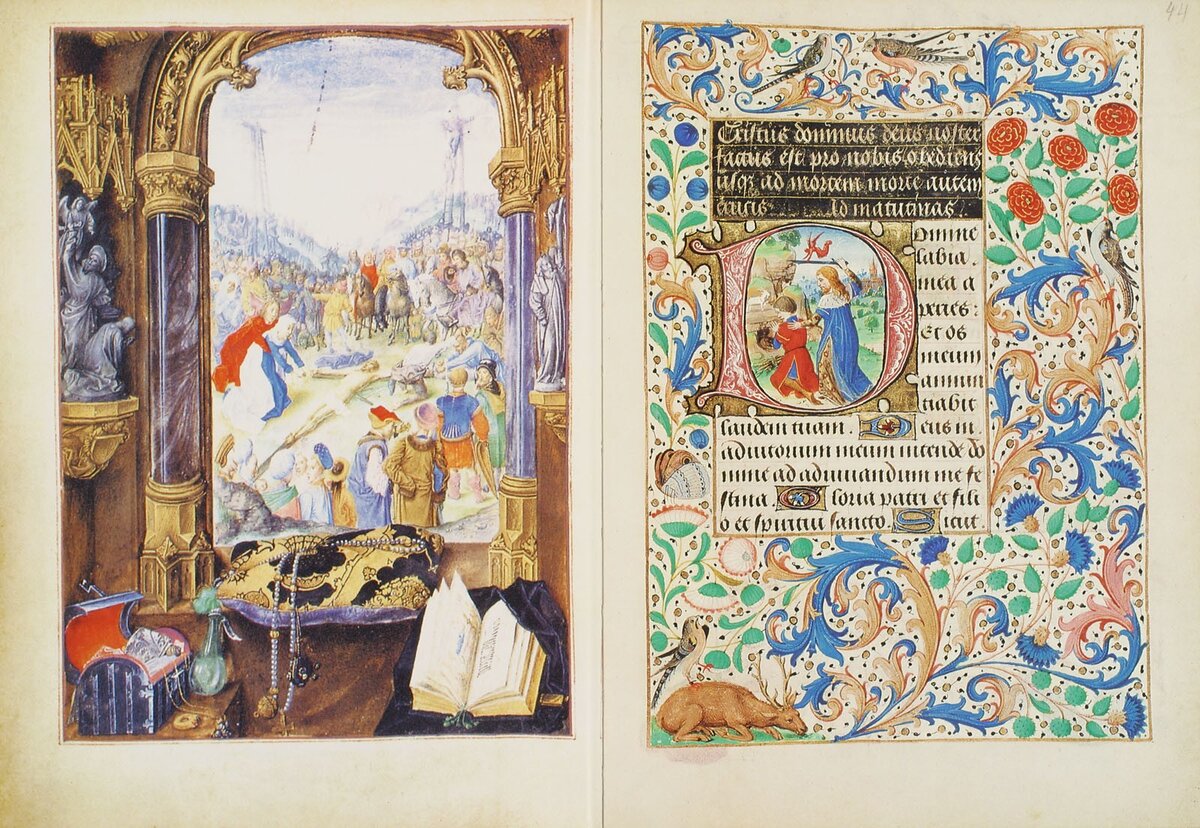 44
Cristus dominus deus noster
factus est pro nobis obediens
usq; ad mortem morte autem
crucis. Ad matutinas.
Domine
labia.
mea a
peries:
Et os
meum
annun
tiabit
laudem tuam. Deus in
adiutorium meum intende do
mine ad adiuuandum me fe
stina. Gloria patri et fili
o et spiritui sancto. Sicut.